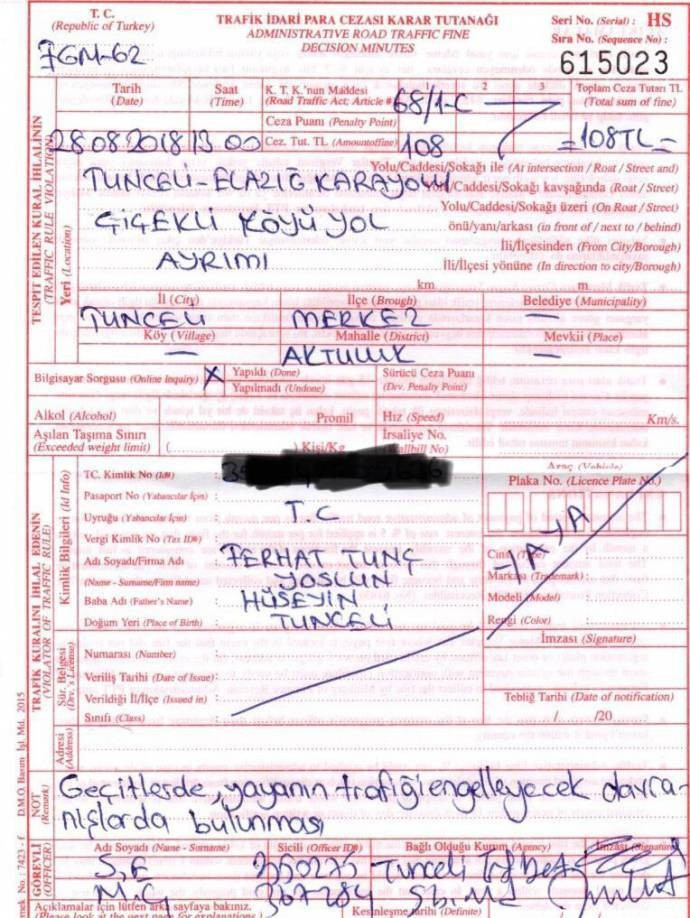 T. C.
(Republic of Turkey)
TRAFİK İDARİ PARA CEZASI KARAR TUTANAĞI
ADMINISTRATIVE ROAD TRAFFIC FINE
DECISION MINUTES
Seri No. (Serial) : HS
Sıra No. (Sequence No) :
615023
7GM-62
TESPİT EDİLEN KURAL İHLALININ
(TRAFFIC RULE VIOLATION)
Tarih
(Date)
Saat
(Time)
K. T. K.'nun Maddesi
(Road Traffic Act; Article #)
68/1-C
2
3
Toplam Ceza Tutarı TL
(Total sum of fine)
Ceza Puanı (Penalty Point)
28 08 2018 13 00
Cez. Tut. TL (Amountoffine)
108
=108TL=
Yeri (Location)
Yolu/Caddesi/Sokağı ile (At intersection / Roat / Street and)
TUNCELİ-ELAZIĞ KARAYOLU
Yolu/Caddesi/Sokağı kavşağında (Roat / Street)
Yolu/Caddesi/Sokağı üzeri (On Roat / Street)
ÇİÇEKLİ KÖYÜ YOL
önü/yanı/arkası (in front of / next to / behind)
İli/İlçesinden (From City/Borough)
AYRIMI
İli/İlçesi yönüne (In direction to city/Borough)
km
m.
İl (City)
İlçe (Brough)
Belediye (Municipality)
TUNCELİ
MERKEZ
—
Köy (Village)
Mahalle (District)
Mevkii (Place)
—
AKTULUK
—
Bilgisayar Sorgusu (Online Inquiry)
X
Yapıldı (Done)
Yapılmadı (Undone)
Sürücü Ceza Puanı
(Drv. Penalty Point)
Alkol (Alcohol)
Promil
Hız (Speed)
Km/s.
Aşılan Taşıma Sınırı
(Exceeded weight limit)
(............) Kişi/Kg
İrsaliye No.
(Wallbill No)
TRAFİK KURALINI İHLAL EDENİN
(VIOLATOR OF TRAFFIC RULE)
Kimlik Bilgileri (Id Info)
TC. Kimlik No (Id#) :
Pasaport No (Yabancılar İçin) :
Uyruğu (Yabancılar İçin) :
T.C
Vergi Kimlik No (Tax ID#) :
Adı Soyadı/Firma Adı
(Name - Surname/Firm name) :
FERHAT TUNÇ
YOSLUN
Baba Adı (Father's Name) :
HÜSEYİN
Doğum Yeri (Place of Birth) :
TUNCELİ
Araç (Vehicle)
Plaka No. (Licence Plate No.)
YAYA
Cinsi (Type) :
Markası (Trademark) :
Modeli (Model) :
Rengi (Color) :
Sür. Belgesi
(Drv.'s License)
Numarası (Number) :
Veriliş Tarihi (Date of Issue) :
Verildiği İl/İlçe (Issued in) :
Sınıfı (Class) :
İmzası (Signature)
Tebliğ Tarihi (Date of notification)
/ /20
Adresi
(Address)
NOT
(Remark)
Geçitlerde, yayanın trafiği engelleyecek davra-
nışlarda bulunması
GÖREVLİ
(OFFICER)
Adı Soyadı (Name - Surname)
Sicili (Officer ID#)
Bağlı Olduğu Kurum (Agency)
İmzası (Signature)
S,E
250275
Tunceli
M.C
367284
Açıklamalar için lütfen arka sayfaya bakınız.
(Please look at the next page for explanations.)
Kesinleşme tarihi (Definite)
D.M.O. Basım İşl. Md. 2015
No. : 7423 - f